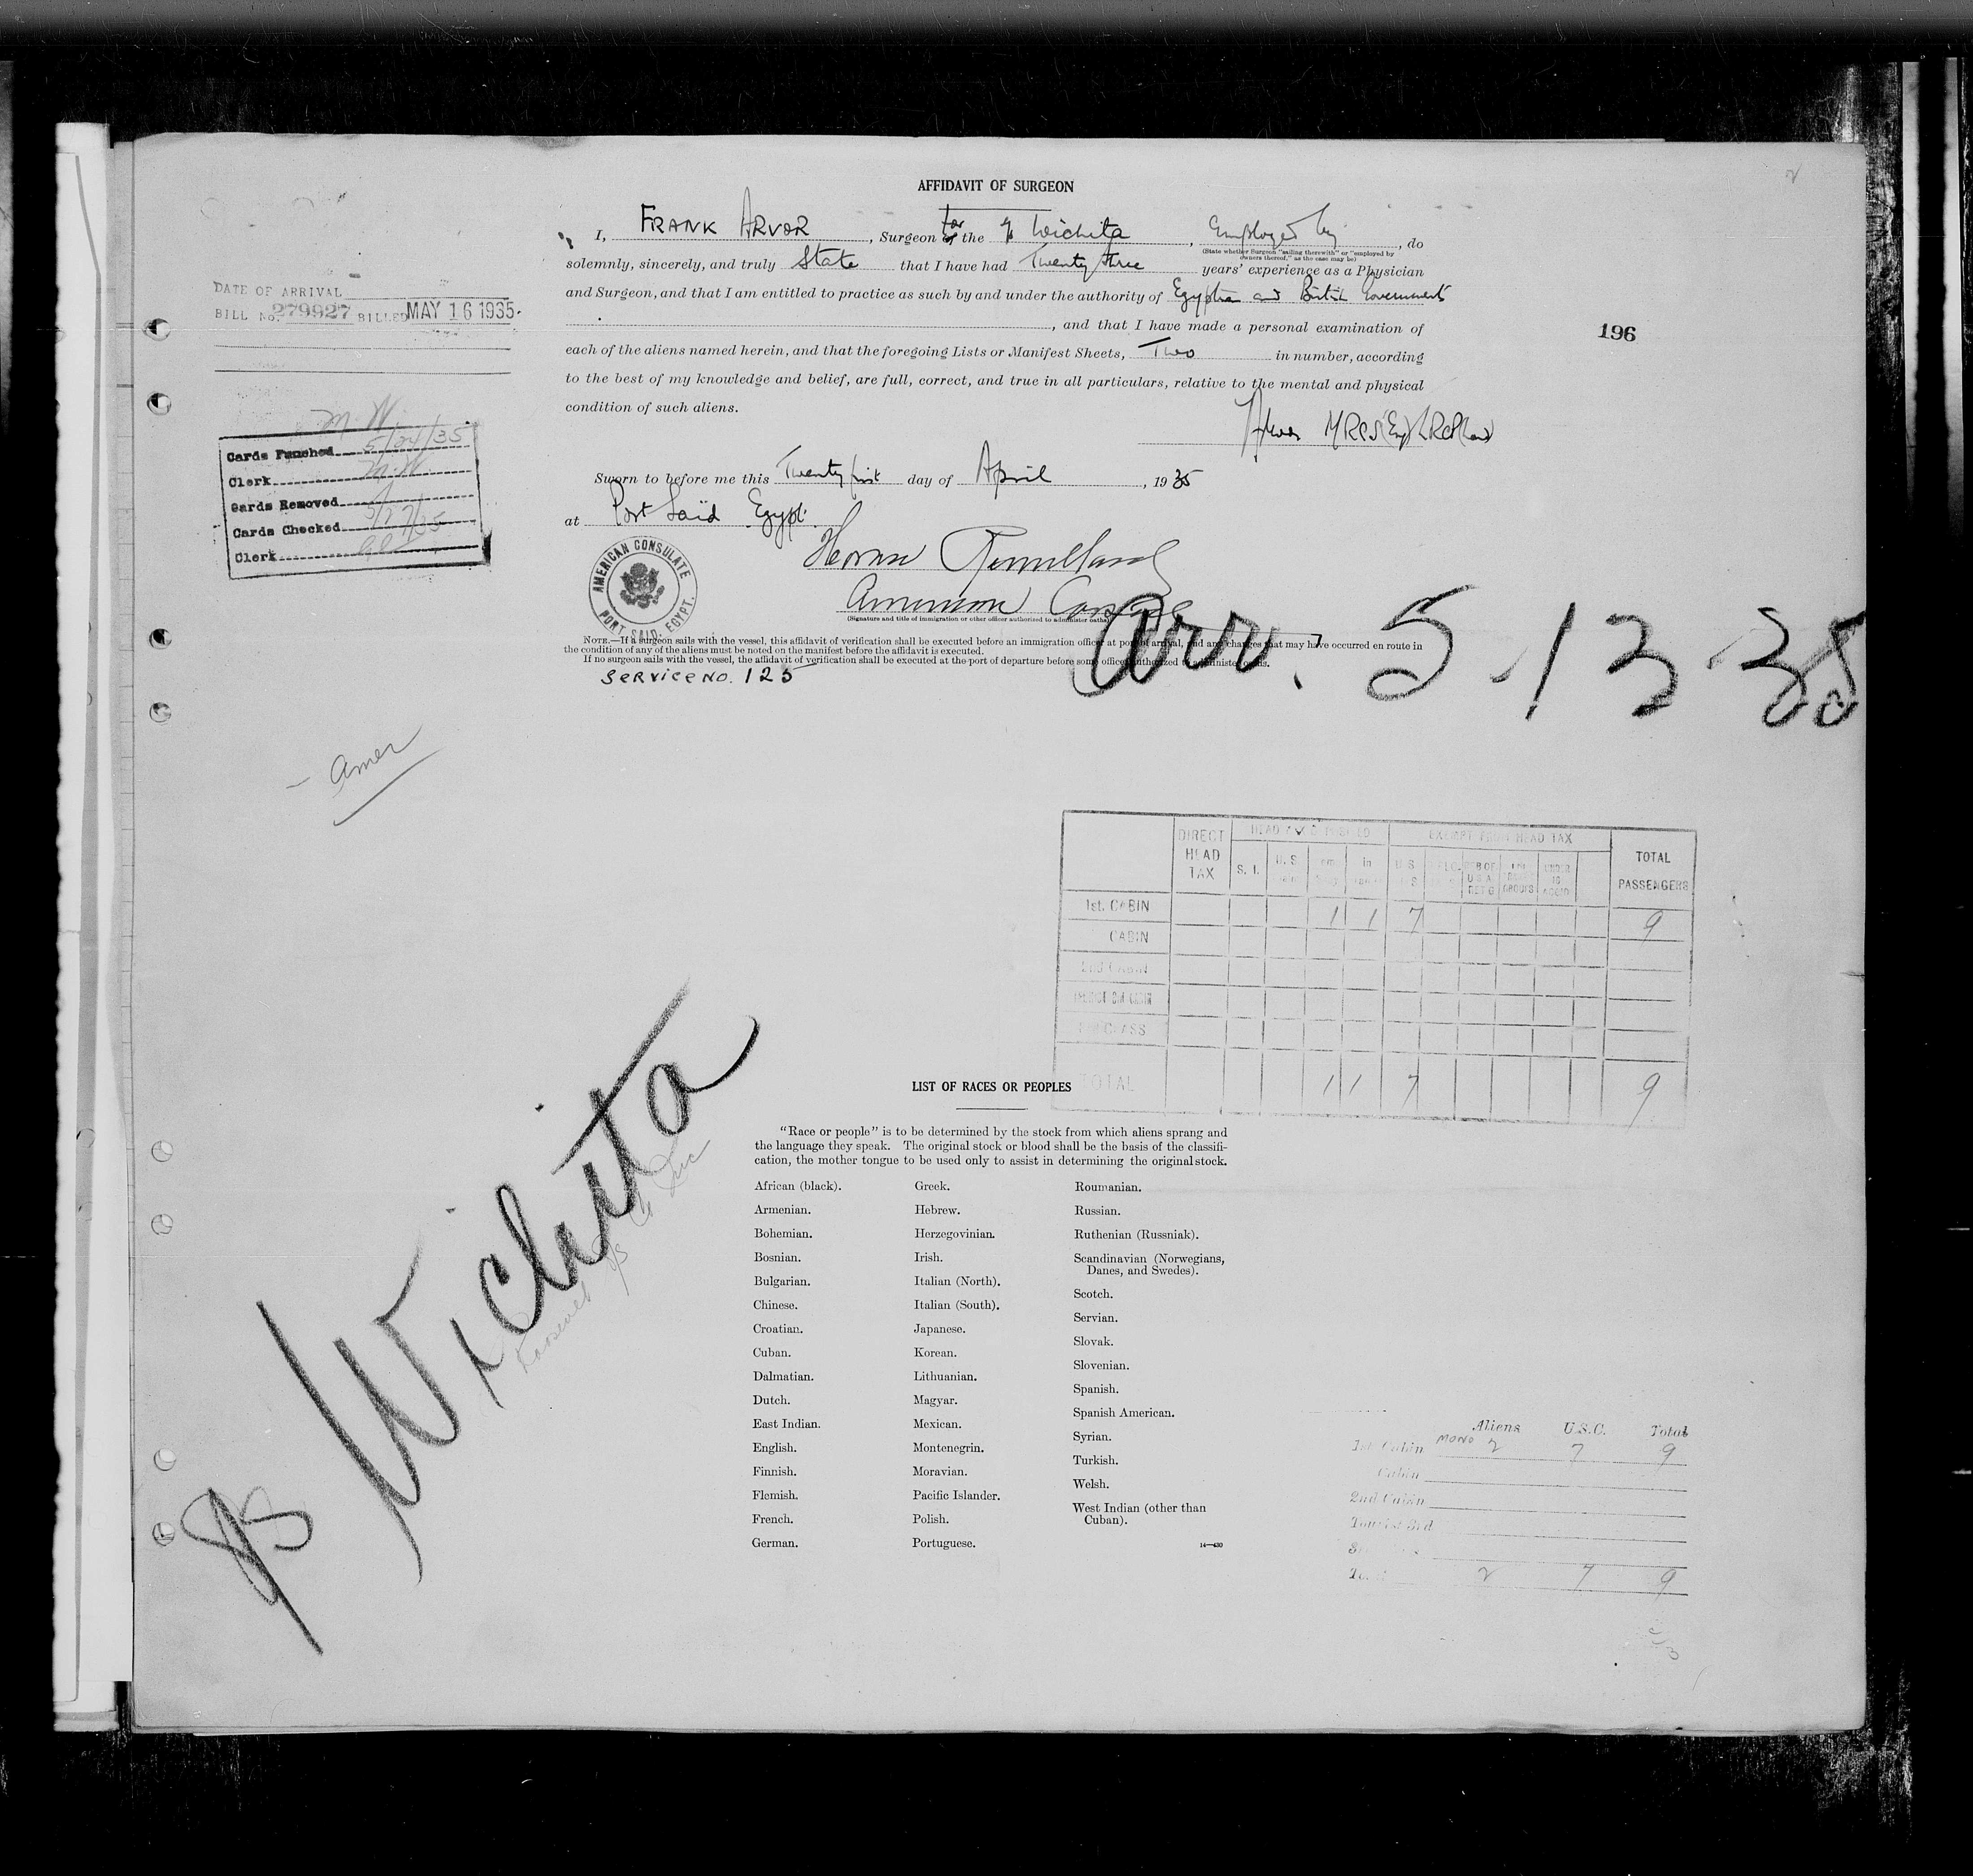 AFFIDAVIT OF SURGEON
I, FRANK ARVOR, Surgeon for of the Wichita, Employed by, do
(State whether Surgeon "sailing therewith" or "employed by
owners thereof," as the case may be)
solemnly, sincerely, and truly State that I have had Twenty three years' experience as a Physician
and Surgeon, and that I am entitled to practice as such by and under the authority of Egyptian and British Governments
, and that I have made a personal examination of
each of the aliens named herein, and that the foregoing Lists or Manifest Sheets, Two in number, according
to the best of my knowledge and belief, are full, correct, and true in all particulars, relative to the mental and physical
condition of such aliens.
Sworn to before me this Twenty first day of April, 1935
at Port Saïd Egypt
AMERICAN CONSULATE
PORT SAID, EGYPT.
American
(Signature and title of immigration or other officer authorized to administer oaths)
NOTE.—If a surgeon sails with the vessel, this affidavit of verification shall be executed before an immigration officer at port of arrival, and any changes that may have occurred en route in
the condition of any of the aliens must be noted on the manifest before the affidavit is executed.
If no surgeon sails with the vessel, the affidavit of verification shall be executed at the port of departure before some officer authorized to administer oaths.
SERVICE NO. 125
Arr. 5-13-35
196
DATE OF ARRIVAL
BILL No. 279927 BILLED MAY 16 1935
M.W.
Cards Punched 5/24/35
Clerk M.W.
Cards Removed
Cards Checked 5/27/35
Clerk
Amer
DIRECT HEAD TAX
EXEMPT FROM HEAD TAX
TOTAL PASSENGERS
S. I. U. S. in U S
1st. CABIN 1 1 7 9
CABIN
2nd CABIN
TOTAL 1 1 7 9
S/S Wichita
Roosevelt S/S Co Inc
LIST OF RACES OR PEOPLES
"Race or people" is to be determined by the stock from which aliens sprang and
the language they speak. The original stock or blood shall be the basis of the classifi-
cation, the mother tongue to be used only to assist in determining the original stock.
African (black).
Armenian.
Bohemian.
Bosnian.
Bulgarian.
Chinese.
Croatian.
Cuban.
Dalmatian.
Dutch.
East Indian.
English.
Finnish.
Flemish.
French.
German.
Greek.
Hebrew.
Herzegovinian.
Irish.
Italian (North).
Italian (South).
Japanese.
Korean.
Lithuanian.
Magyar.
Mexican.
Montenegrin.
Moravian.
Pacific Islander.
Polish.
Portuguese.
Roumanian.
Russian.
Ruthenian (Russniak).
Scandinavian (Norwegians,
Danes, and Swedes).
Scotch.
Servian.
Slovak.
Slovenian.
Spanish.
Spanish American.
Syrian.
Turkish.
Welsh.
West Indian (other than
Cuban).
14—430
Aliens U.S.C. Total
1st Cabin MONO 2 7 9
Cabin
2nd Cabin
Tourist 3rd
Total 2 7 9